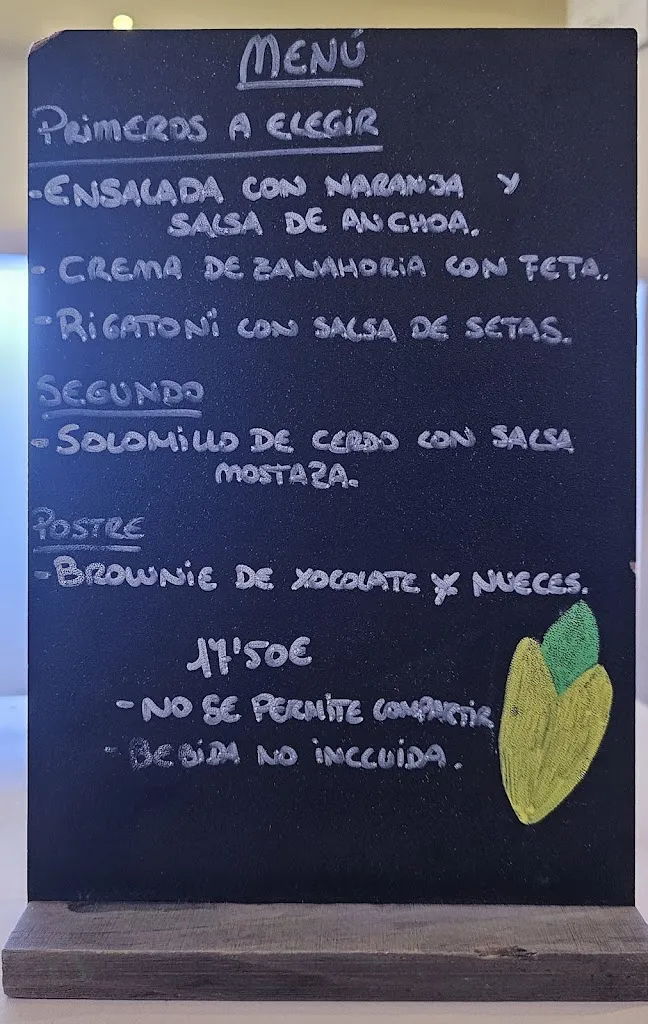 MENÚ
PRIMEROS A ELEGIR
-ENSALADA CON NARANJA Y
SALSA DE ANCHOA.
- CREMA DE ZANAHORIA CON FETA.
-RIGATONI CON SALSA DE SETAS.
SEGUNDO
-SOLOMILLO DE CERDO CON SALSA
MOSTAZA.
POSTRE
-BROWNIE DE XOCOLATE Y NUECES.
17'50€
-NO SE PERMITE COMPARTIR
-BEBIDA NO INCLUIDA.